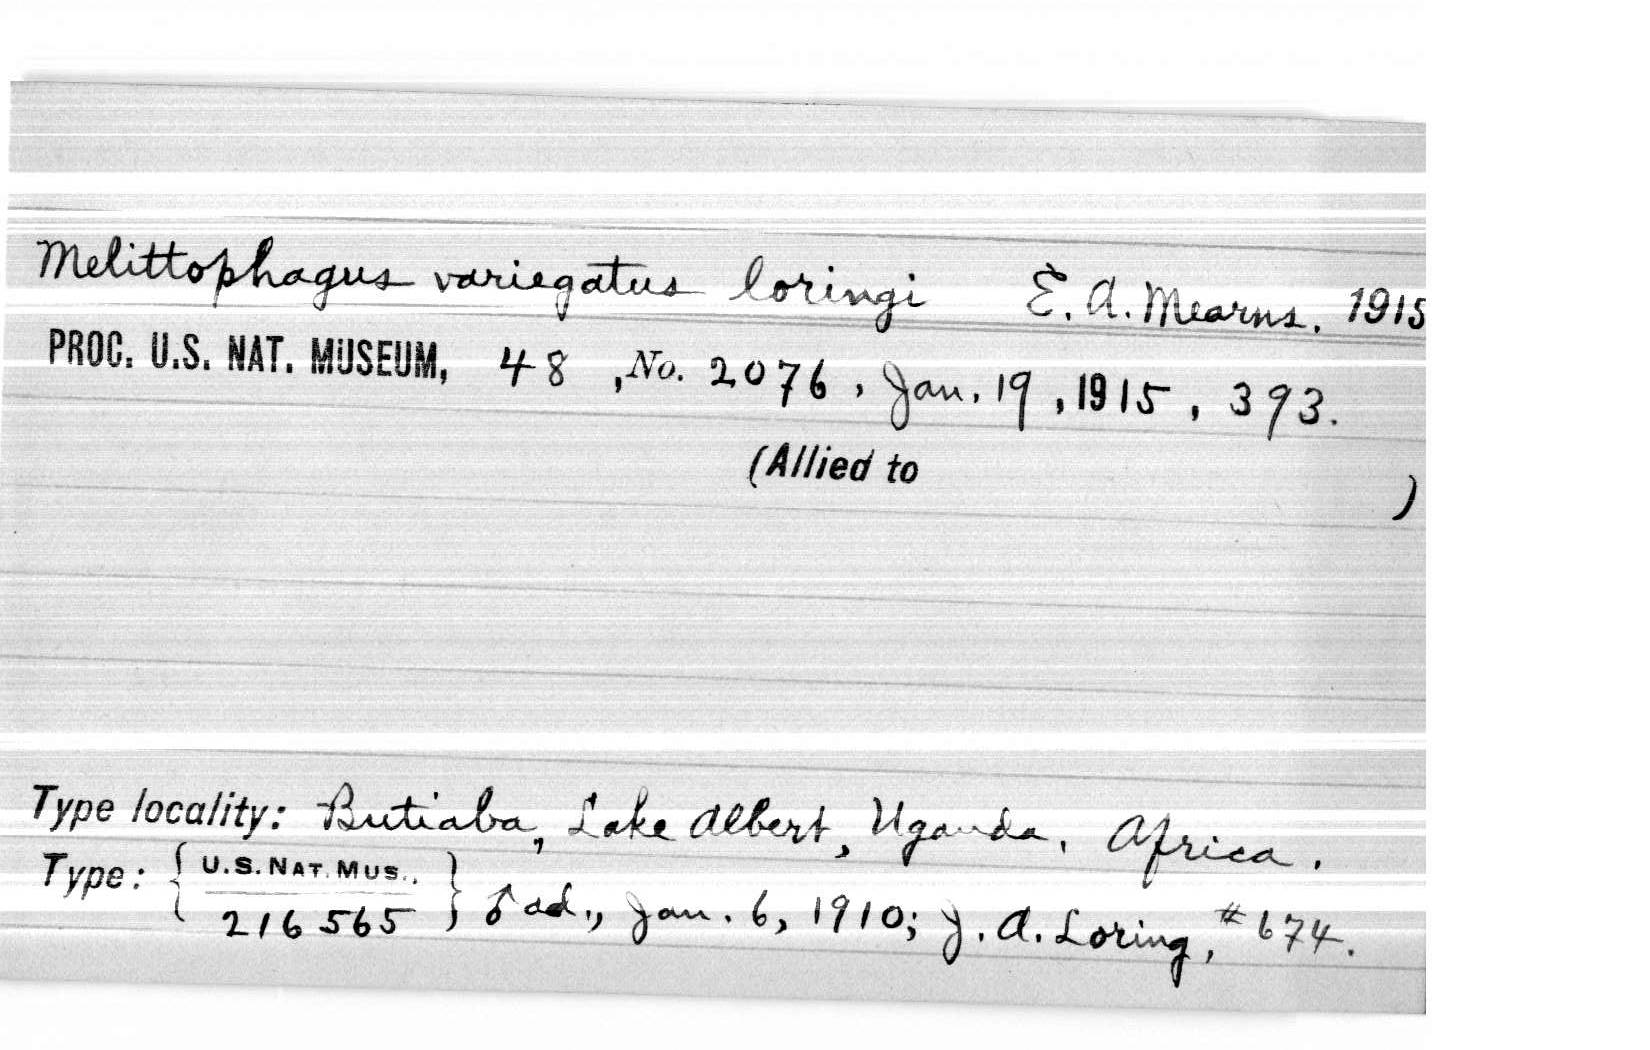 Melittophagus variegatus loringi E. A. Mearns. 1915
PROC. U.S. NAT. MUSEUM, 48, No. 2076, Jan. 19, 1915, 393.
(Allied to )
Type locality: Butiaba, Lake Albert, Uganda, Africa.
Type: { U.S. NAT. MUS.. } ♂ ad., Jan. 6, 1910; J. A. Loring, #674.
216565